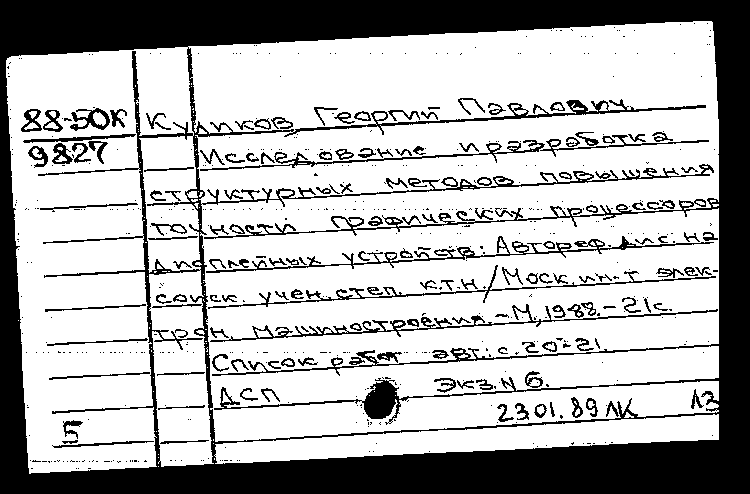 88-50К Куликов, Георгий Павлович.
9827 Исследование и разработка
структурных методов повышения
точности графических процессоров
дисплейных устройств: Автореф. дис. на
соиск. учен. степ. к.т.н. / Моск. ин-т элек-
трон. машиностроения. – М., 1988. – 21 с.
Список работ авт.: с. 20-21.
ДСП Экз. N 6.
5 23.01.89 ЛК ЛЗ